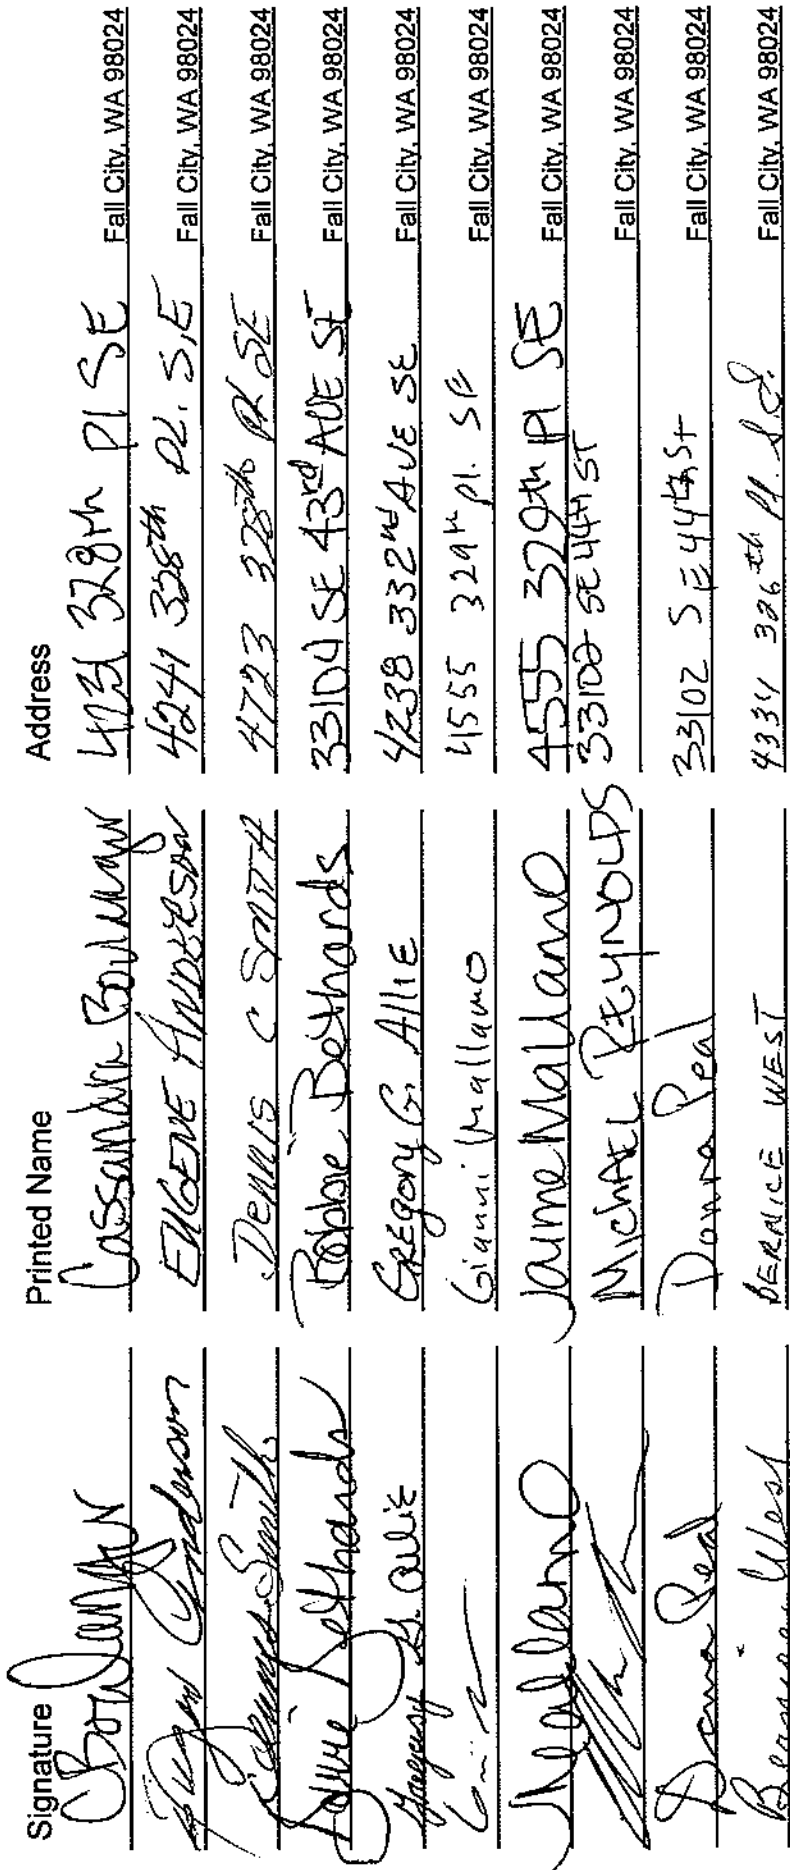 Signature Printed Name Address
Cassandra 4231 328th Pl SE Fall City, WA 98024
Eugene Anderson EUGENE ANDERSON 4241 328th PL. S.E Fall City, WA 98024
Dennis Smith DENNIS C SMITH 4723 328th PL SE Fall City, WA 98024
Bobbie Bethards Bobbie Bethards 33104 SE 43rd AVE SE Fall City, WA 98024
Gregory G. Allie GREGORY G. ALLIE 4238 332nd AVE SE Fall City, WA 98024
Gianni Mallamo 4555 329th pl. SE Fall City, WA 98024
JMallamo Jaime Mallamo 4555 329th Pl SE Fall City, WA 98024
MICHAEL REYNOLDS 33102 SE 44TH ST Fall City, WA 98024
Donna Peal Donna Peal 33102 SE 44th St Fall City, WA 98024
Bernice West BERNICE WEST 4334 326th Pl. S.E. Fall City, WA 98024